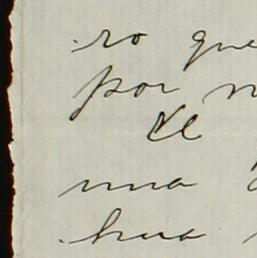 ro que
por
Ve
una
hua